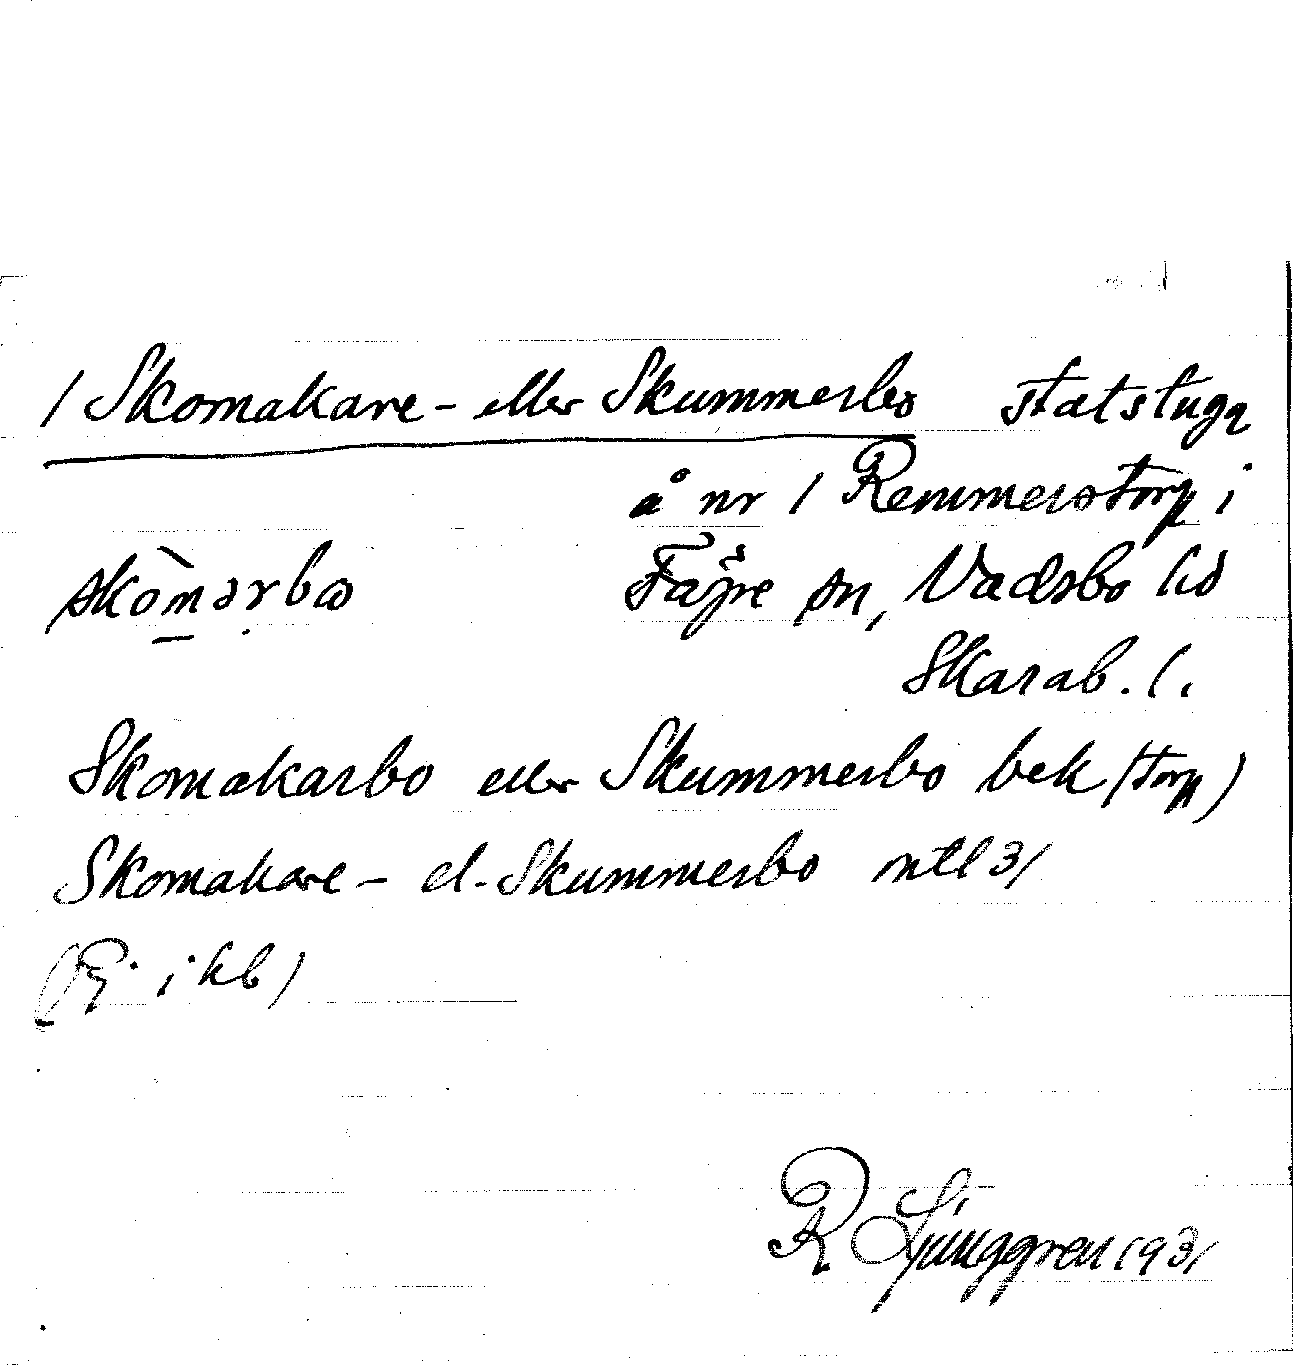 / Skomakare- eller Skummerbo statstuga
å nr 1 Remmerstorp i
skòmərbω Fägre sn, Vadsbo hd
Skarab. l.
Skomakarbo eller Skummerbo bek (torp)
Skomakare- el. Skummerbo mtl 31
(Ej i kb)
R Ljunggren 1931